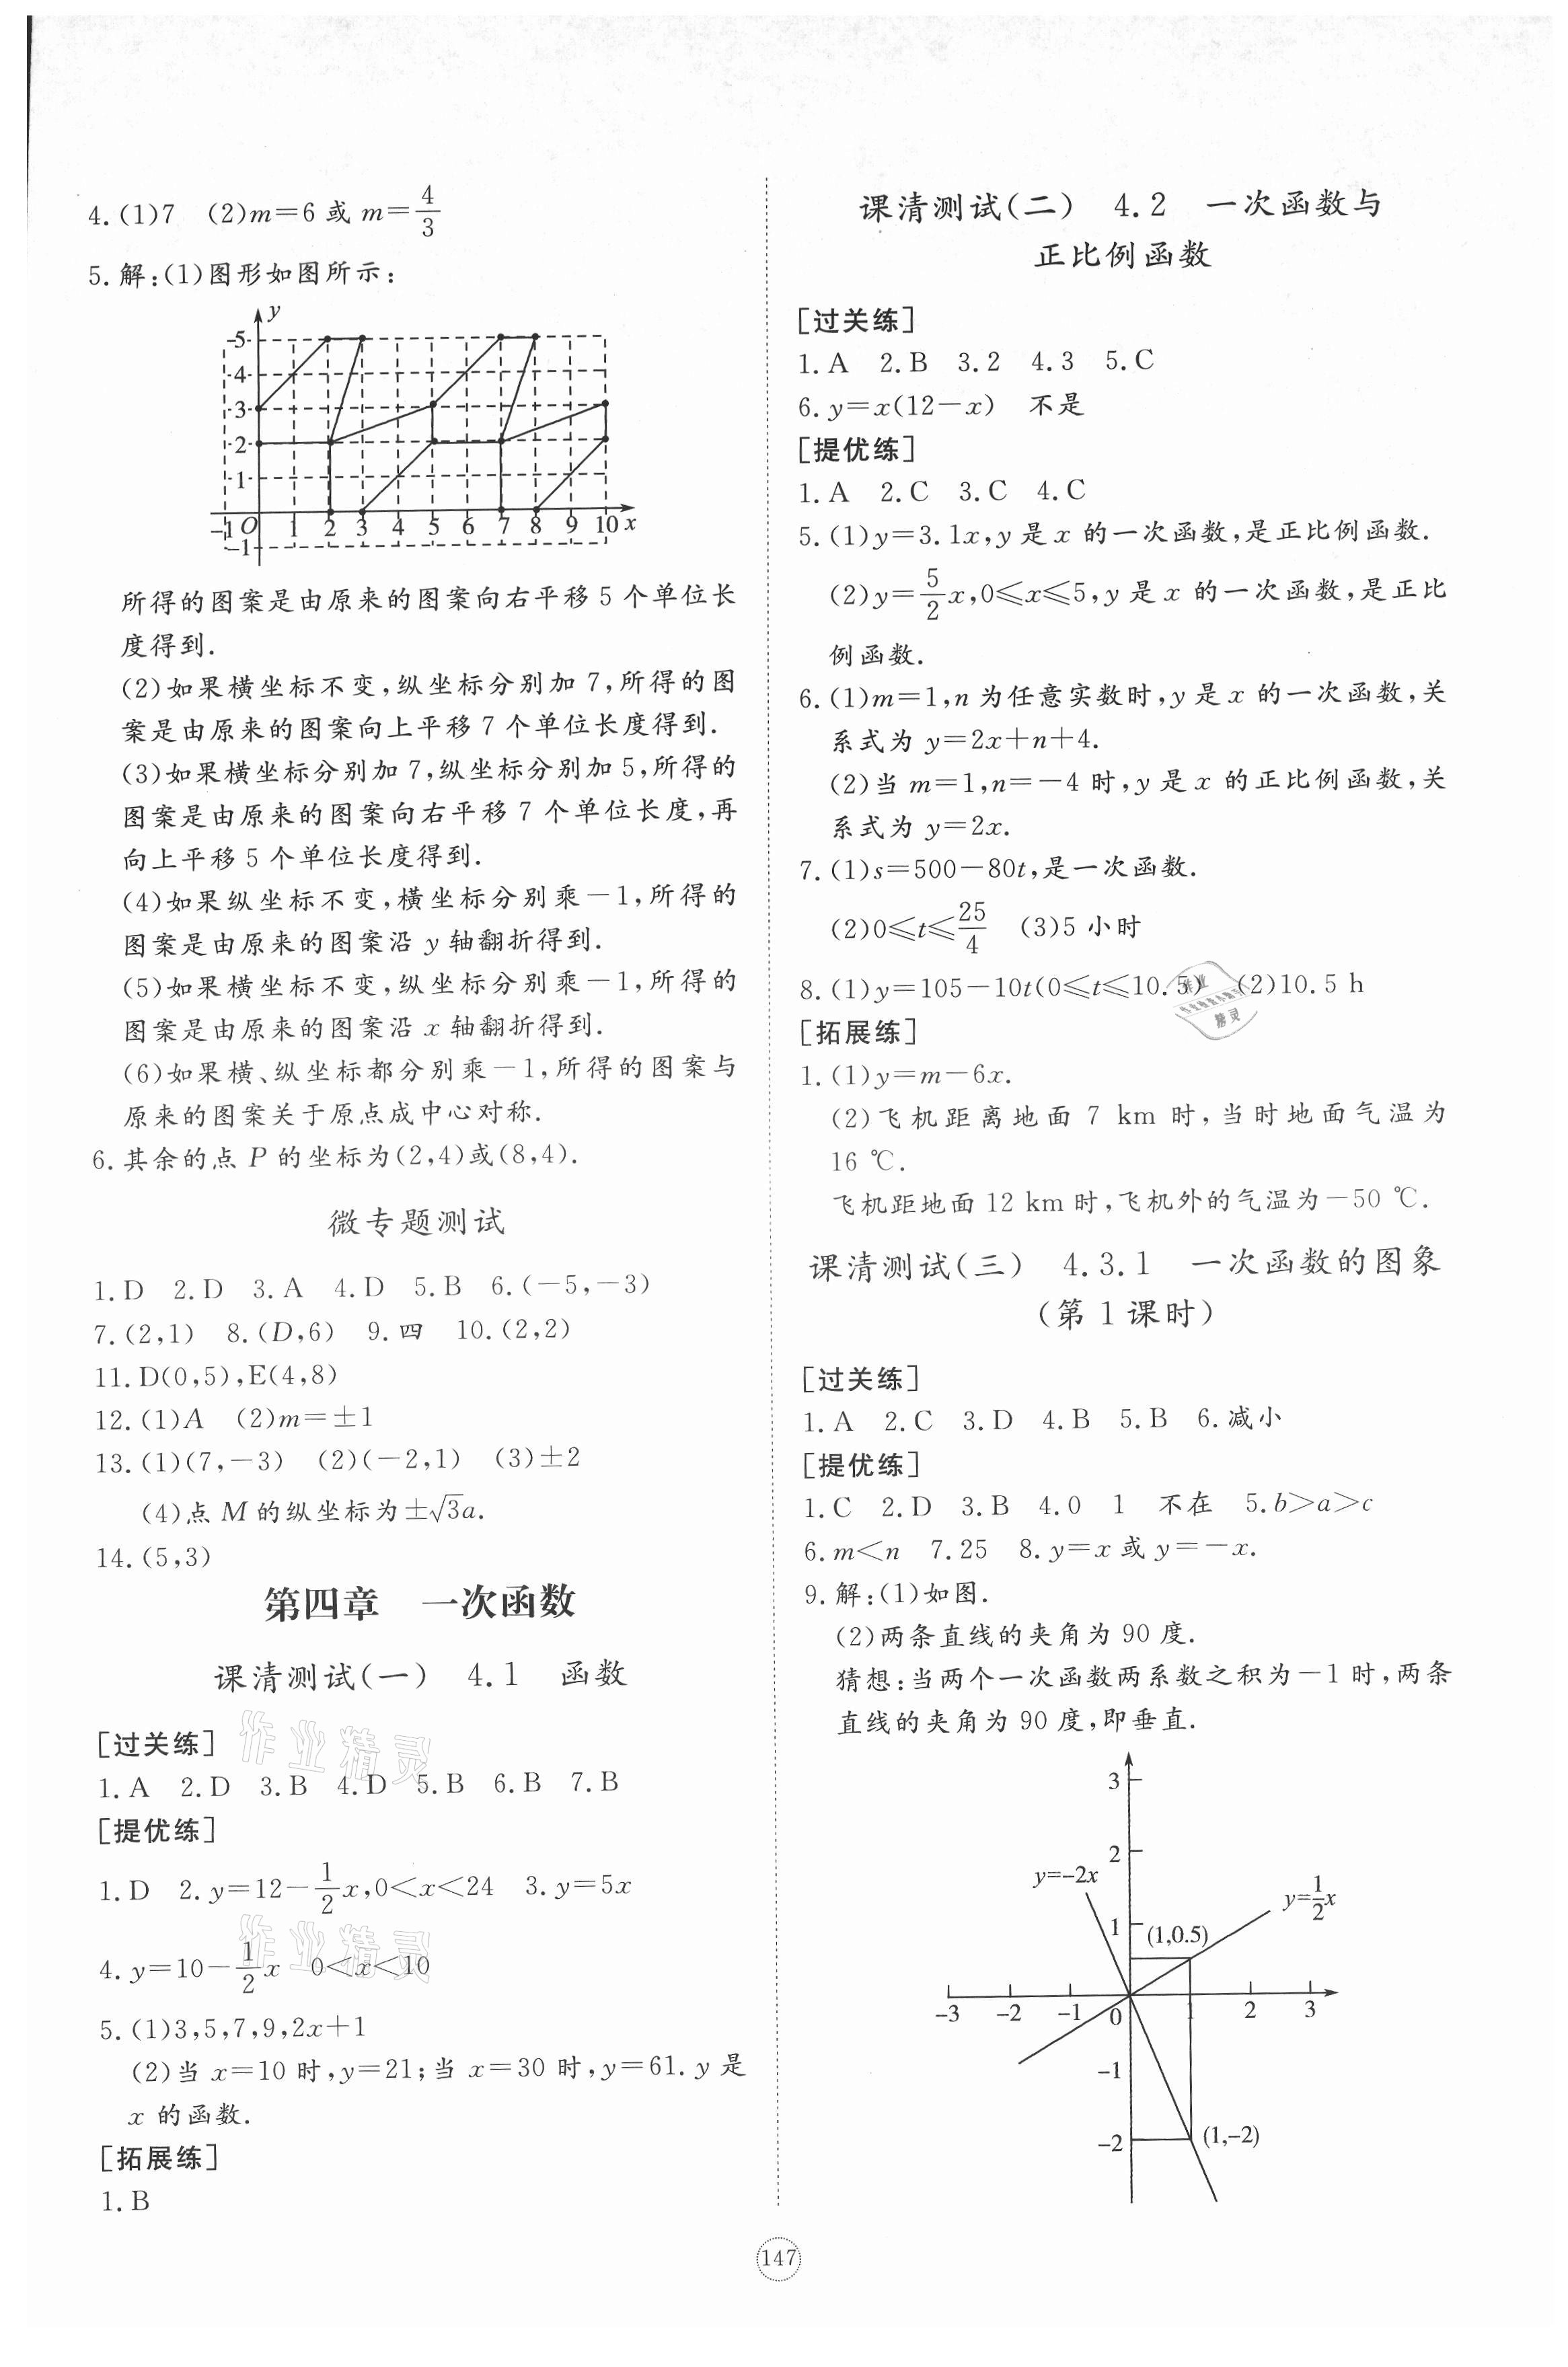 4.(1)7 (2)m=6或m=4/3
5.解:(1)图形如图所示:
y
5
4
3
2
1
-1 O 1 2 3 4 5 6 7 8 9 10 x
-1
所得的图案是由原来的图案向右平移5个单位长
度得到.
(2)如果横坐标不变,纵坐标分别加7,所得的图
案是由原来的图案向上平移7个单位长度得到.
(3)如果横坐标分别加7,纵坐标分别加5,所得的
图案是由原来的图案向右平移7个单位长度,再
向上平移5个单位长度得到.
(4)如果纵坐标不变,横坐标分别乘-1,所得的
图案是由原来的图案沿y轴翻折得到.
(5)如果横坐标不变,纵坐标分别乘-1,所得的
图案是由原来的图案沿x轴翻折得到.
(6)如果横、纵坐标都分别乘-1,所得的图案与
原来的图案关于原点成中心对称.
6.其余的点P的坐标为(2,4)或(8,4).
微专题测试
1.D 2.D 3.A 4.D 5.B 6.(-5,-3)
7.(2,1) 8.(D,6) 9.四 10.(2,2)
11.D(0,5),E(4,8)
12.(1)A (2)m=±1
13.(1)(7,-3) (2)(-2,1) (3)±2
(4)点M的纵坐标为±√3a.
14.(5,3)
第四章 一次函数
课清测试(一) 4.1 函数
[过关练]
1.A 2.D 3.B 4.D 5.B 6.B 7.B
[提优练]
1.D 2.y=12-1/2x,0<x<24 3.y=5x
4.y=10-1/2x 0<x<10
5.(1)3,5,7,9,2x+1
(2)当x=10时,y=21;当x=30时,y=61.y是
x的函数.
[拓展练]
1.B
作业精灵
作业精灵
课清测试(二) 4.2 一次函数与
正比例函数
[过关练]
1.A 2.B 3.2 4.3 5.C
6.y=x(12-x) 不是
[提优练]
1.A 2.C 3.C 4.C
5.(1)y=3.1x,y是x的一次函数,是正比例函数.
(2)y=5/2x,0≤x≤5,y是x的一次函数,是正比
例函数.
6.(1)m=1,n为任意实数时,y是x的一次函数,关
系式为y=2x+n+4.
(2)当m=1,n=-4时,y是x的正比例函数,关
系式为y=2x.
7.(1)s=500-80t,是一次函数.
(2)0≤t≤25/4 (3)5小时
8.(1)y=105-10t(0≤t≤10.5) (2)10.5 h
[拓展练]
1.(1)y=m-6x.
(2)飞机距离地面7 km时,当时地面气温为
16 ℃.
飞机距地面12 km时,飞机外的气温为-50 ℃.
课清测试(三) 4.3.1 一次函数的图象
(第1课时)
[过关练]
1.A 2.C 3.D 4.B 5.B 6.减小
[提优练]
1.C 2.D 3.B 4.0 1 不在 5.b>a>c
6.m<n 7.25 8.y=x或y=-x.
9.解:(1)如图.
(2)两条直线的夹角为90度.
猜想:当两个一次函数两系数之积为-1时,两条
直线的夹角为90度,即垂直.
3
2
y=-2x
y=1/2x
1
(1,0.5)
-3 -2 -1 0 1 2 3
-1
-2
(1,-2)
147